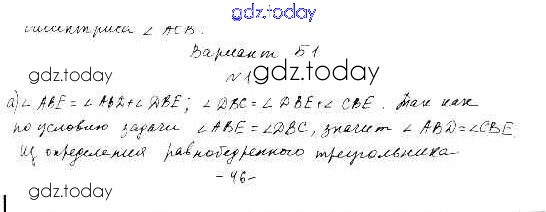 gdz.today
биссектриса ∠ ACB.
Вариант Б1
gdz.today
№1
gdz.today
а) ∠ ABE = ∠ ABD + ∠ DBE; ∠ DBC = ∠ DBE + ∠ CBE. Так как
по условию задачи ∠ ABE = ∠DBC, значит ∠ ABD = ∠CBE.
Из определения равнобедренного треугольника
- 46 -
gdz.today